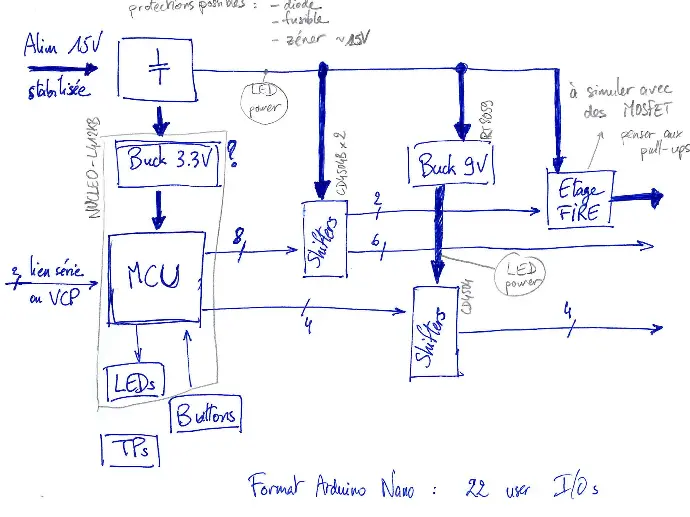 protections possibles : - diode
- fusible
- zéner ~15V
Alim 15V
stabilisée
LED
power
à simuler avec
des MOSFET
penser aux
pull-ups
NUCLEO-L412KB
Buck 3.3V ?
CD4504B x 2
RT8059
Buck 9V
Etage
FIRE
2
8
Shifters
6
MCU
2 lien série
ou VCP
LED
power
4
CD4504
Shifters
4
LEDs
Buttons
TPs
Format Arduino Nano : 22 user I/Os